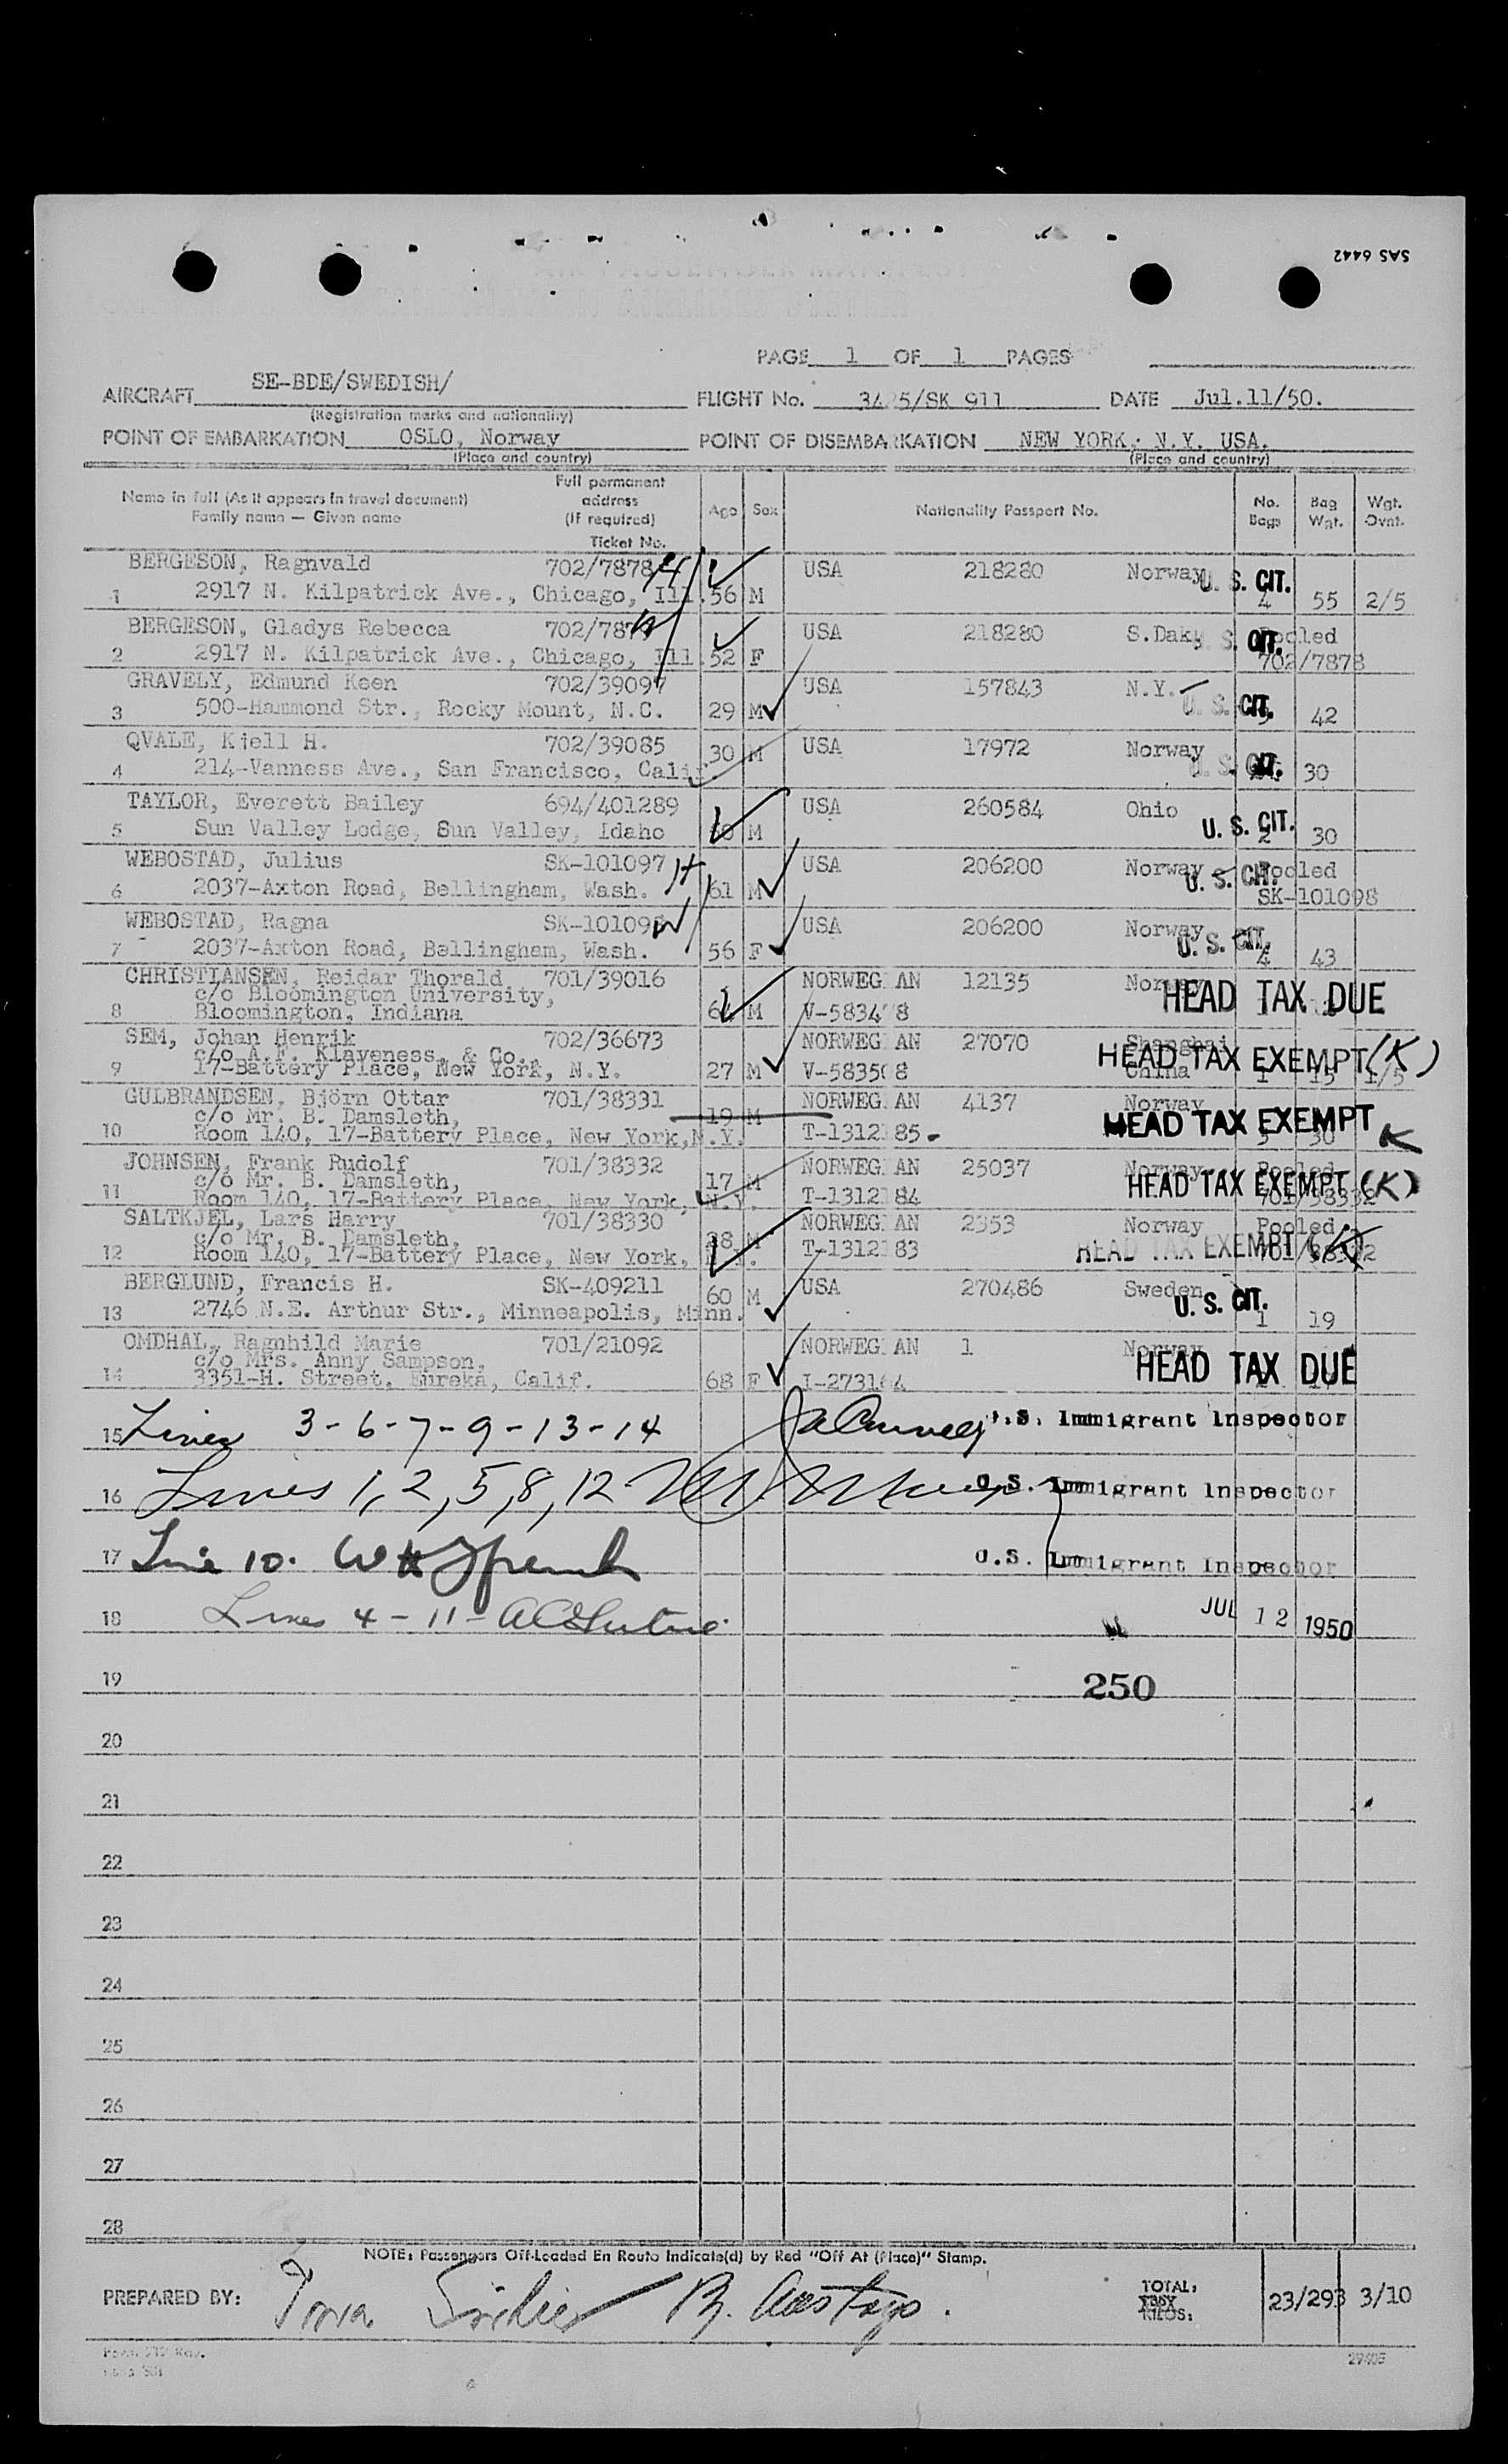 SAS 6442
PAGE 1 OF 1 PAGES
AIRCRAFT SE-BDE/SWEDISH/ FLIGHT No. 34 5/SK 911 DATE Jul.11/50.
(Registration marks and nationality)
POINT OF EMBARKATION OSLO, Norway POINT OF DISEMBARKATION NEW YORK, N.Y. USA.
(Place and country) (Place and country)
Name in full (As it appears in travel document) Family name — Given name Full permanent address (if required) Ticket No. Age Sex Nationality Passport No. No. Bags Bag Wgt. Wgt. Ovnt.
BERGESON, Ragnvald 702/7878 H USA 218280 Norway U. S. CIT.
1 2917 N. Kilpatrick Ave., Chicago, Ill. 56 M 4 55 2/5
BERGESON, Gladys Rebecca 702/787 W USA 218280 S.Dak. U. S. CIT. Pooled
2 2917 N. Kilpatrick Ave., Chicago, Ill. 52 F 702/7878
GRAVELY, Edmund Keen 702/39097 USA 157843 N.Y.
3 500-Hammond Str., Rocky Mount, N.C. 29 M U. S. CIT. 42
QVALE, Kjell H. 702/39085 30 M USA 17972 Norway
4 214-Vanness Ave., San Francisco, Calif. U. S. CIT. 30
TAYLOR, Everett Bailey 694/401289 USA 260584 Ohio
5 Sun Valley Lodge, Sun Valley, Idaho M U. S. CIT. 2 30
WEBOSTAD, Julius SK-101097 H USA 206200 Norway Pooled
6 2037-Axton Road, Bellingham, Wash. 61 M U. S. CIT. SK-101098
WEBOSTAD, Ragna SK-101098 W USA 206200 Norway
7 2037-Axton Road, Bellingham, Wash. 56 F U. S. CIT. 4 43
CHRISTIANSEN, Reidar Thorald 701/39016 NORWEG AN 12135 Norway
c/o Bloomington University, HEAD TAX DUE
8 Bloomington, Indiana M V-5834 8
SEM, Johan Henrik 702/36673 NORWEG AN 27070 Shanghai
c/o A.F. Klaveness & Co. HEAD TAX EXEMPT (K)
9 17-Battery Place, New York, N.Y. 27 M V-5835 8 China 1 15 1/5
GULBRANDSEN, Björn Ottar 701/38331 NORWEG AN 4137 Norway
c/o Mr. B. Damsleth, 19 M HEAD TAX EXEMPT K
10 Room 140, 17-Battery Place, New York,N.Y. T-1312 85 30
JOHNSEN, Frank Rudolf 701/38332 NORWEG AN 25037 Norway Pooled
c/o Mr. B. Damsleth, 17 M HEAD TAX EXEMPT (K)
11 Room 140, 17-Battery Place, New York, N.Y. T-1312 84 701/38332
SALTKJEL, Lars Harry 701/38330 NORWEG AN 2353 Norway Pooled
c/o Mr. B. Damsleth, 28 M HEAD TAX EXEMPT (K)
12 Room 140, 17-Battery Place, New York, N.Y. T-1312 83 701/38332
BERGLUND, Francis H. SK-409211 60 M USA 270486 Sweden
13 2746 N.E. Arthur Str., Minneapolis, Minn. U. S. CIT. 1 19
OMDHAL, Ragnhild Marie 701/21092 NORWEG AN 1 Norway
c/o Mrs. Anny Sampson, HEAD TAX DUE
14 3351-H. Street, Eureka, Calif. 68 F I-2731 4
15 Lines 3-6-7-9-13-14 U.S. Immigrant Inspector
16 Lines 1, 2, 5, 8, 12 U.S. Immigrant Inspector
17 Line 10. U.S. Immigrant Inspector
18 Lines 4-11- JUL 12 1950
19 250
20
21
22
23
24
25
26
27
28
NOTE: Passengers Off-Loaded En Route Indicate(d) by Red "Off At (Place)" Stamp.
PREPARED BY: TOTAL: KILOS: 23/293 3/10
29405